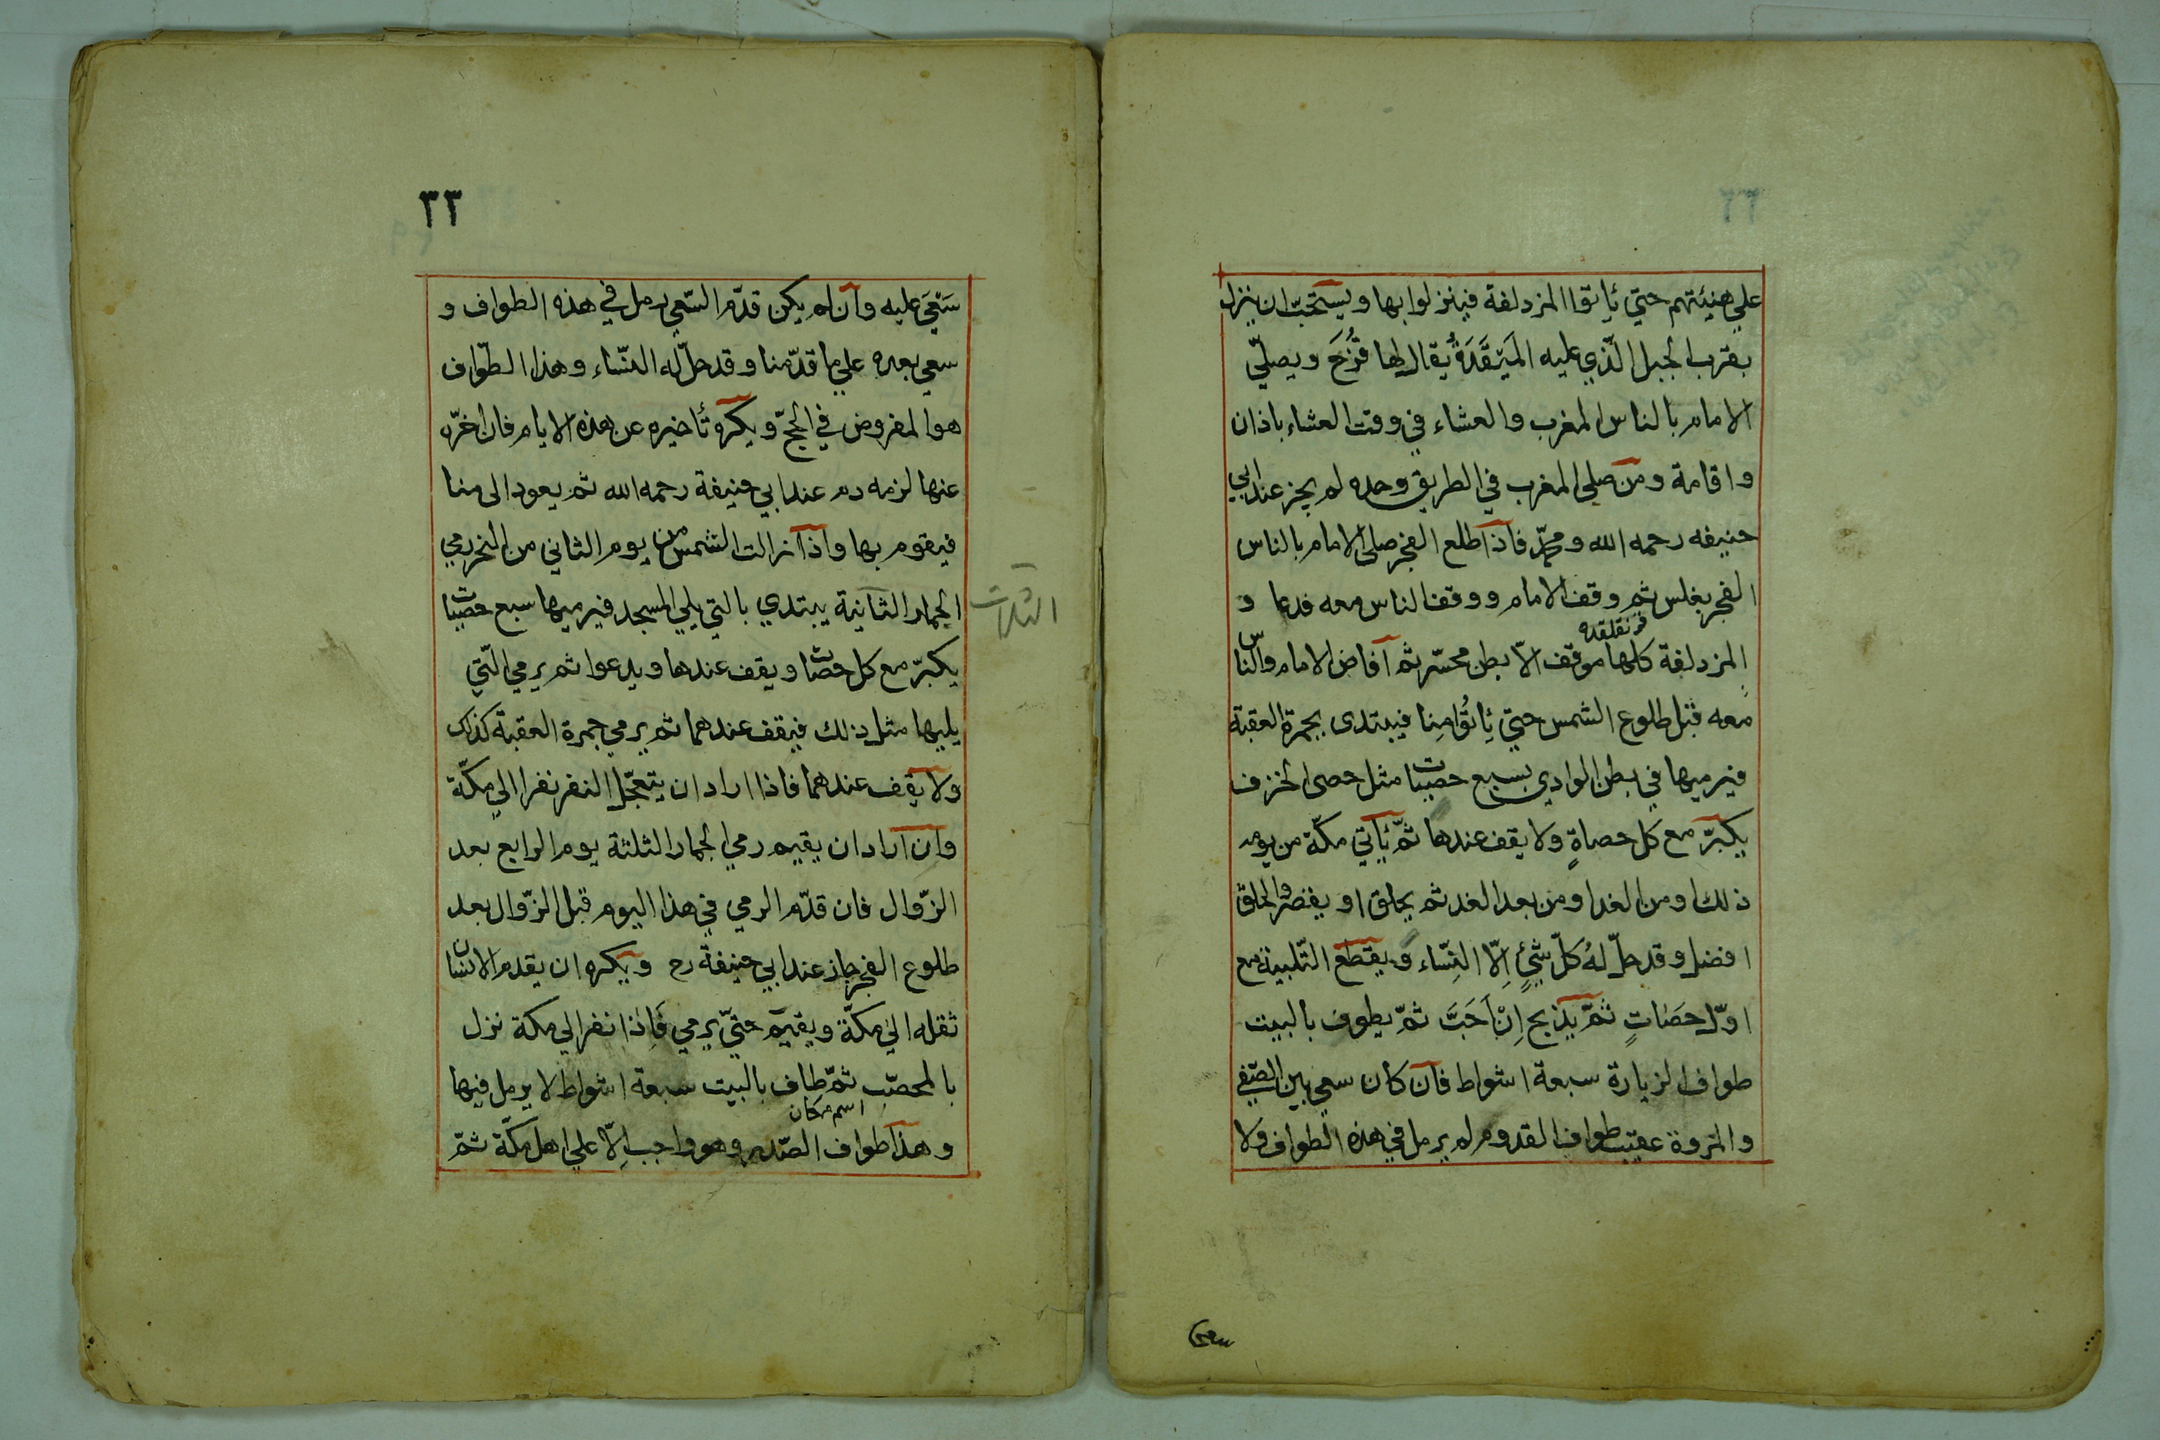 علي هنيئتهم حتي يأتوا المزدلفة فينزلوا بها ويستحبّ ان ينزل
بقرب الجبل الّذي عليه الميَقَدَةُ يُقال لها قُزَحَ ويصلّي
الامام بالناس المغرب والعشاء في وقت العشاء باذان
واقامة ومن صلي المغرب في الطريق وحده لم يجز عند ابي
حنيفه رحمه الله ومحمّد فاذا طلع الفجر صلي الامام بالناس
الفجر بغلس ثم وقف الامام ووقف الناس معه فدعا و
المزدلفة كلها موقف الاّ بطن محسّر ثم افاض الامام والناس
معه قبل طلوع الشمس حتي يأتُوا مِنا فيبتدى بجمرة العقبة
فيرميها في بطن الوادي بسبع حصيات مثل حصى الخزف
يكبّر مع كل حصاةٍ ولا يقف عندها ثمّ يأتي مكّة من يومه
ذلك او من الغد او من بعد الغد ثم يحلق او يقصر والحلق
افضل وقد حلّ لهُ كلّ شيْءٍ اِلّا النِسّاء ويقطع التّلبية مع
اوّل حصَاتٍ ثمّ يذبح اِنْ اَحَبَّ ثمّ يطوف بالبيت
طواف الزيارة سبعة اشواط فان كان سعي بين الصّفي
والمروة عقيب طواف القدوم لم يرمل في هذه الطواف ولا
سعي
٣٣
سَعْيَ عليه وان لم يكن قدّم السّعي يرمل في هذه الطواف و
سعي بعده علي ما قدّمنا وقد حلّ له النّساء وهذا الطّواف
هو المفروض في الحجّ ويكره تأخيره عن هذه الايام فان اخّره
عنها لزمه دم عند ابي حنيفة رحمه الله ثم يعود الى منا
فيقوم بها واذا زالت الشمس من يوم الثاني من النحر رمي
الجمار الثانية يبتدي بالتي يلي المسجد فيرميها سبع حصيات
الثلاث
يكبّر مع كل حصات ويقف عندها ويدعوا ثم يرمي الّتي
يليها مثل ذلك فيقف عندهما ثم يرمي جمرة العقبة كذلك
ولا يقف عندهما فاذا اراد ان يتعجّل النفر نفر الي مكّة
وان اراد ان يقيم رمي الجمار الثلثة يوم الرابع بعد
الزّوال فان قدّم الرمي في هذا اليوم قبل الزّوال بعد
طلوع الفجر جاز عند ابي حنيفة رح ويكره ان يقدم الانسان
ثقله الي مكّة ويقيم حتيّ يرمي فَاِذا نفر الي مكة نزل
بالمحصّب ثمّ طاف بالبيت سبعة اشواط لا يرمل فيها
اسم مكان
وهذا طواف الصّدر وهو واجب اِلّا علي اهل مكّة ثمّ